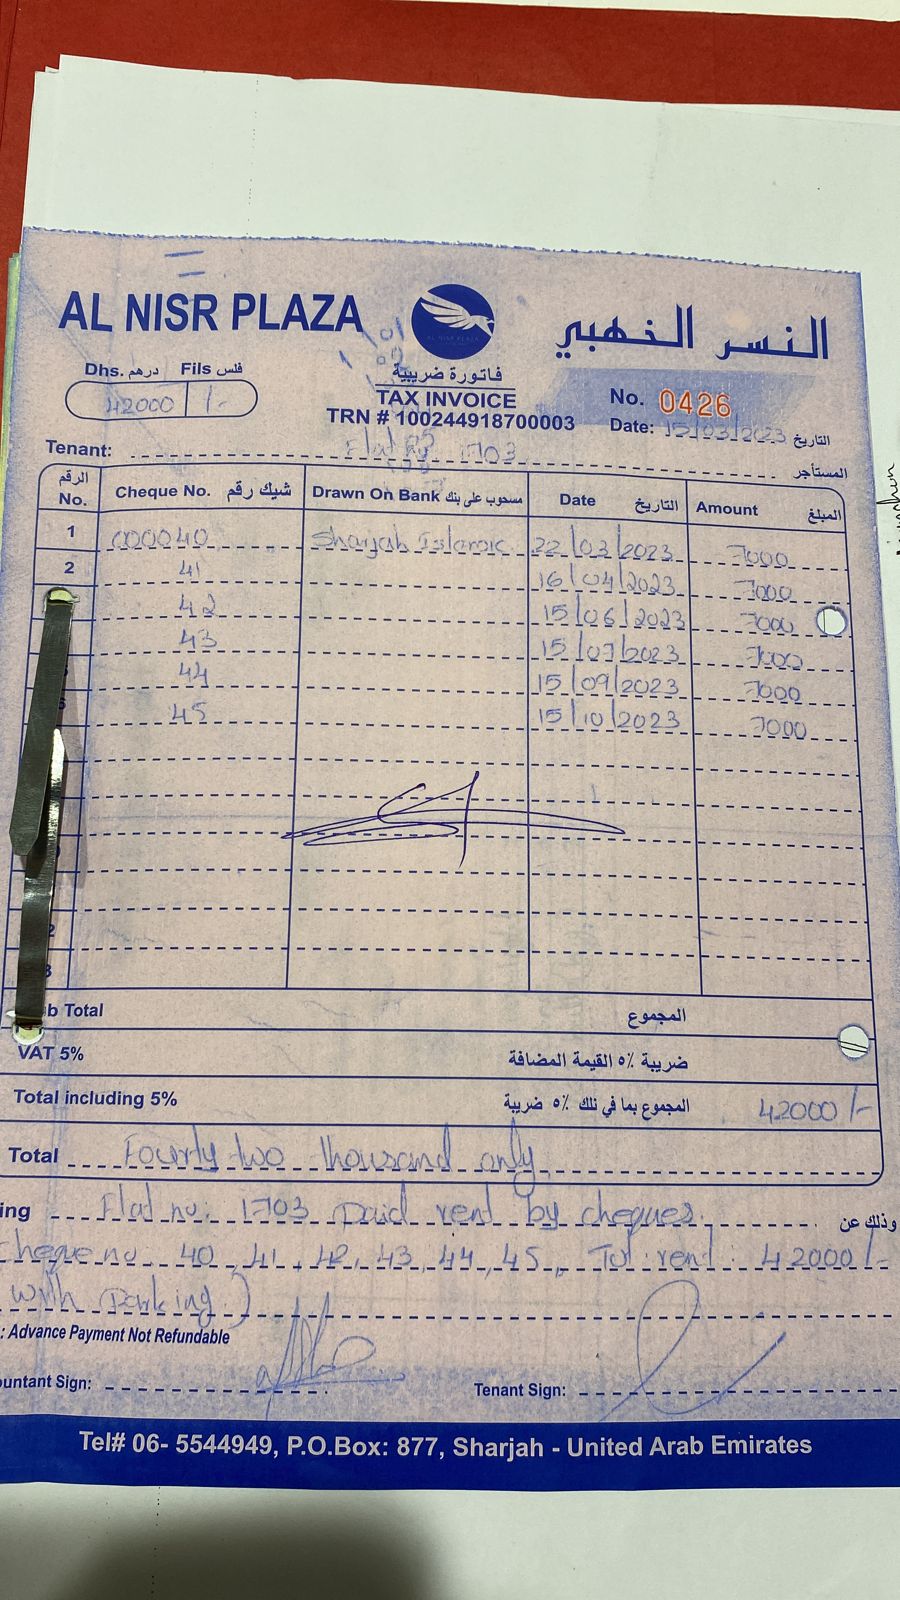 AL NISR PLAZA
AL NISR PLAZA
النسر الذهبي
Dhs. درهم Fils فلس
42000 /-
فاتورة ضريبية
TAX INVOICE
TRN # 100244918700003
No. 0426
Date: 15/03/2023 التاريخ
Tenant: 1703 المستأجر
الرقم No. Cheque No. شيك رقم Drawn On Bank مسحوب على بنك Date التاريخ Amount المبلغ
1 000040 Sharjah Islamic 22/03/2023 7000
2 41 16/04/2023 7000
42 15/06/2023 7000
43 15/07/2023 7000
44 15/09/2023 7000
45 15/10/2023 7000
2
3
b Total المجموع
VAT 5% ضريبة ٥٪ القيمة المضافة
Total including 5% المجموع بما في ذلك ٥٪ ضريبة 42000/-
Total Fourty two thousand only
ing Flat no: 1703 paid rent by cheques. وذلك عن
cheque no 40, 41, 42, 43, 44, 45, Tot rent: 42000/-
with Parking)
: Advance Payment Not Refundable
untant Sign: Tenant Sign:
Tel# 06- 5544949, P.O.Box: 877, Sharjah - United Arab Emirates